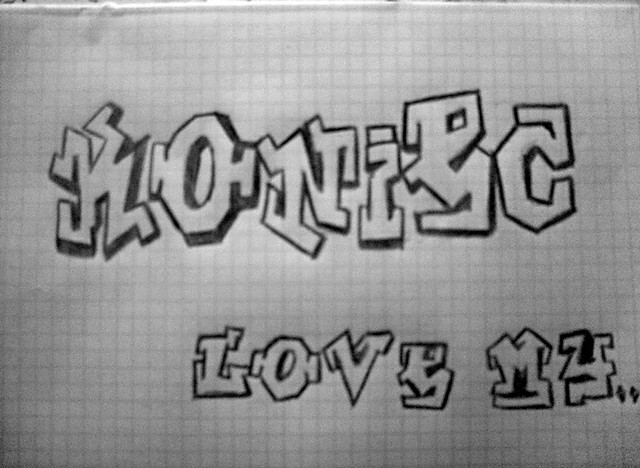 KONiEC
LOVE MY..